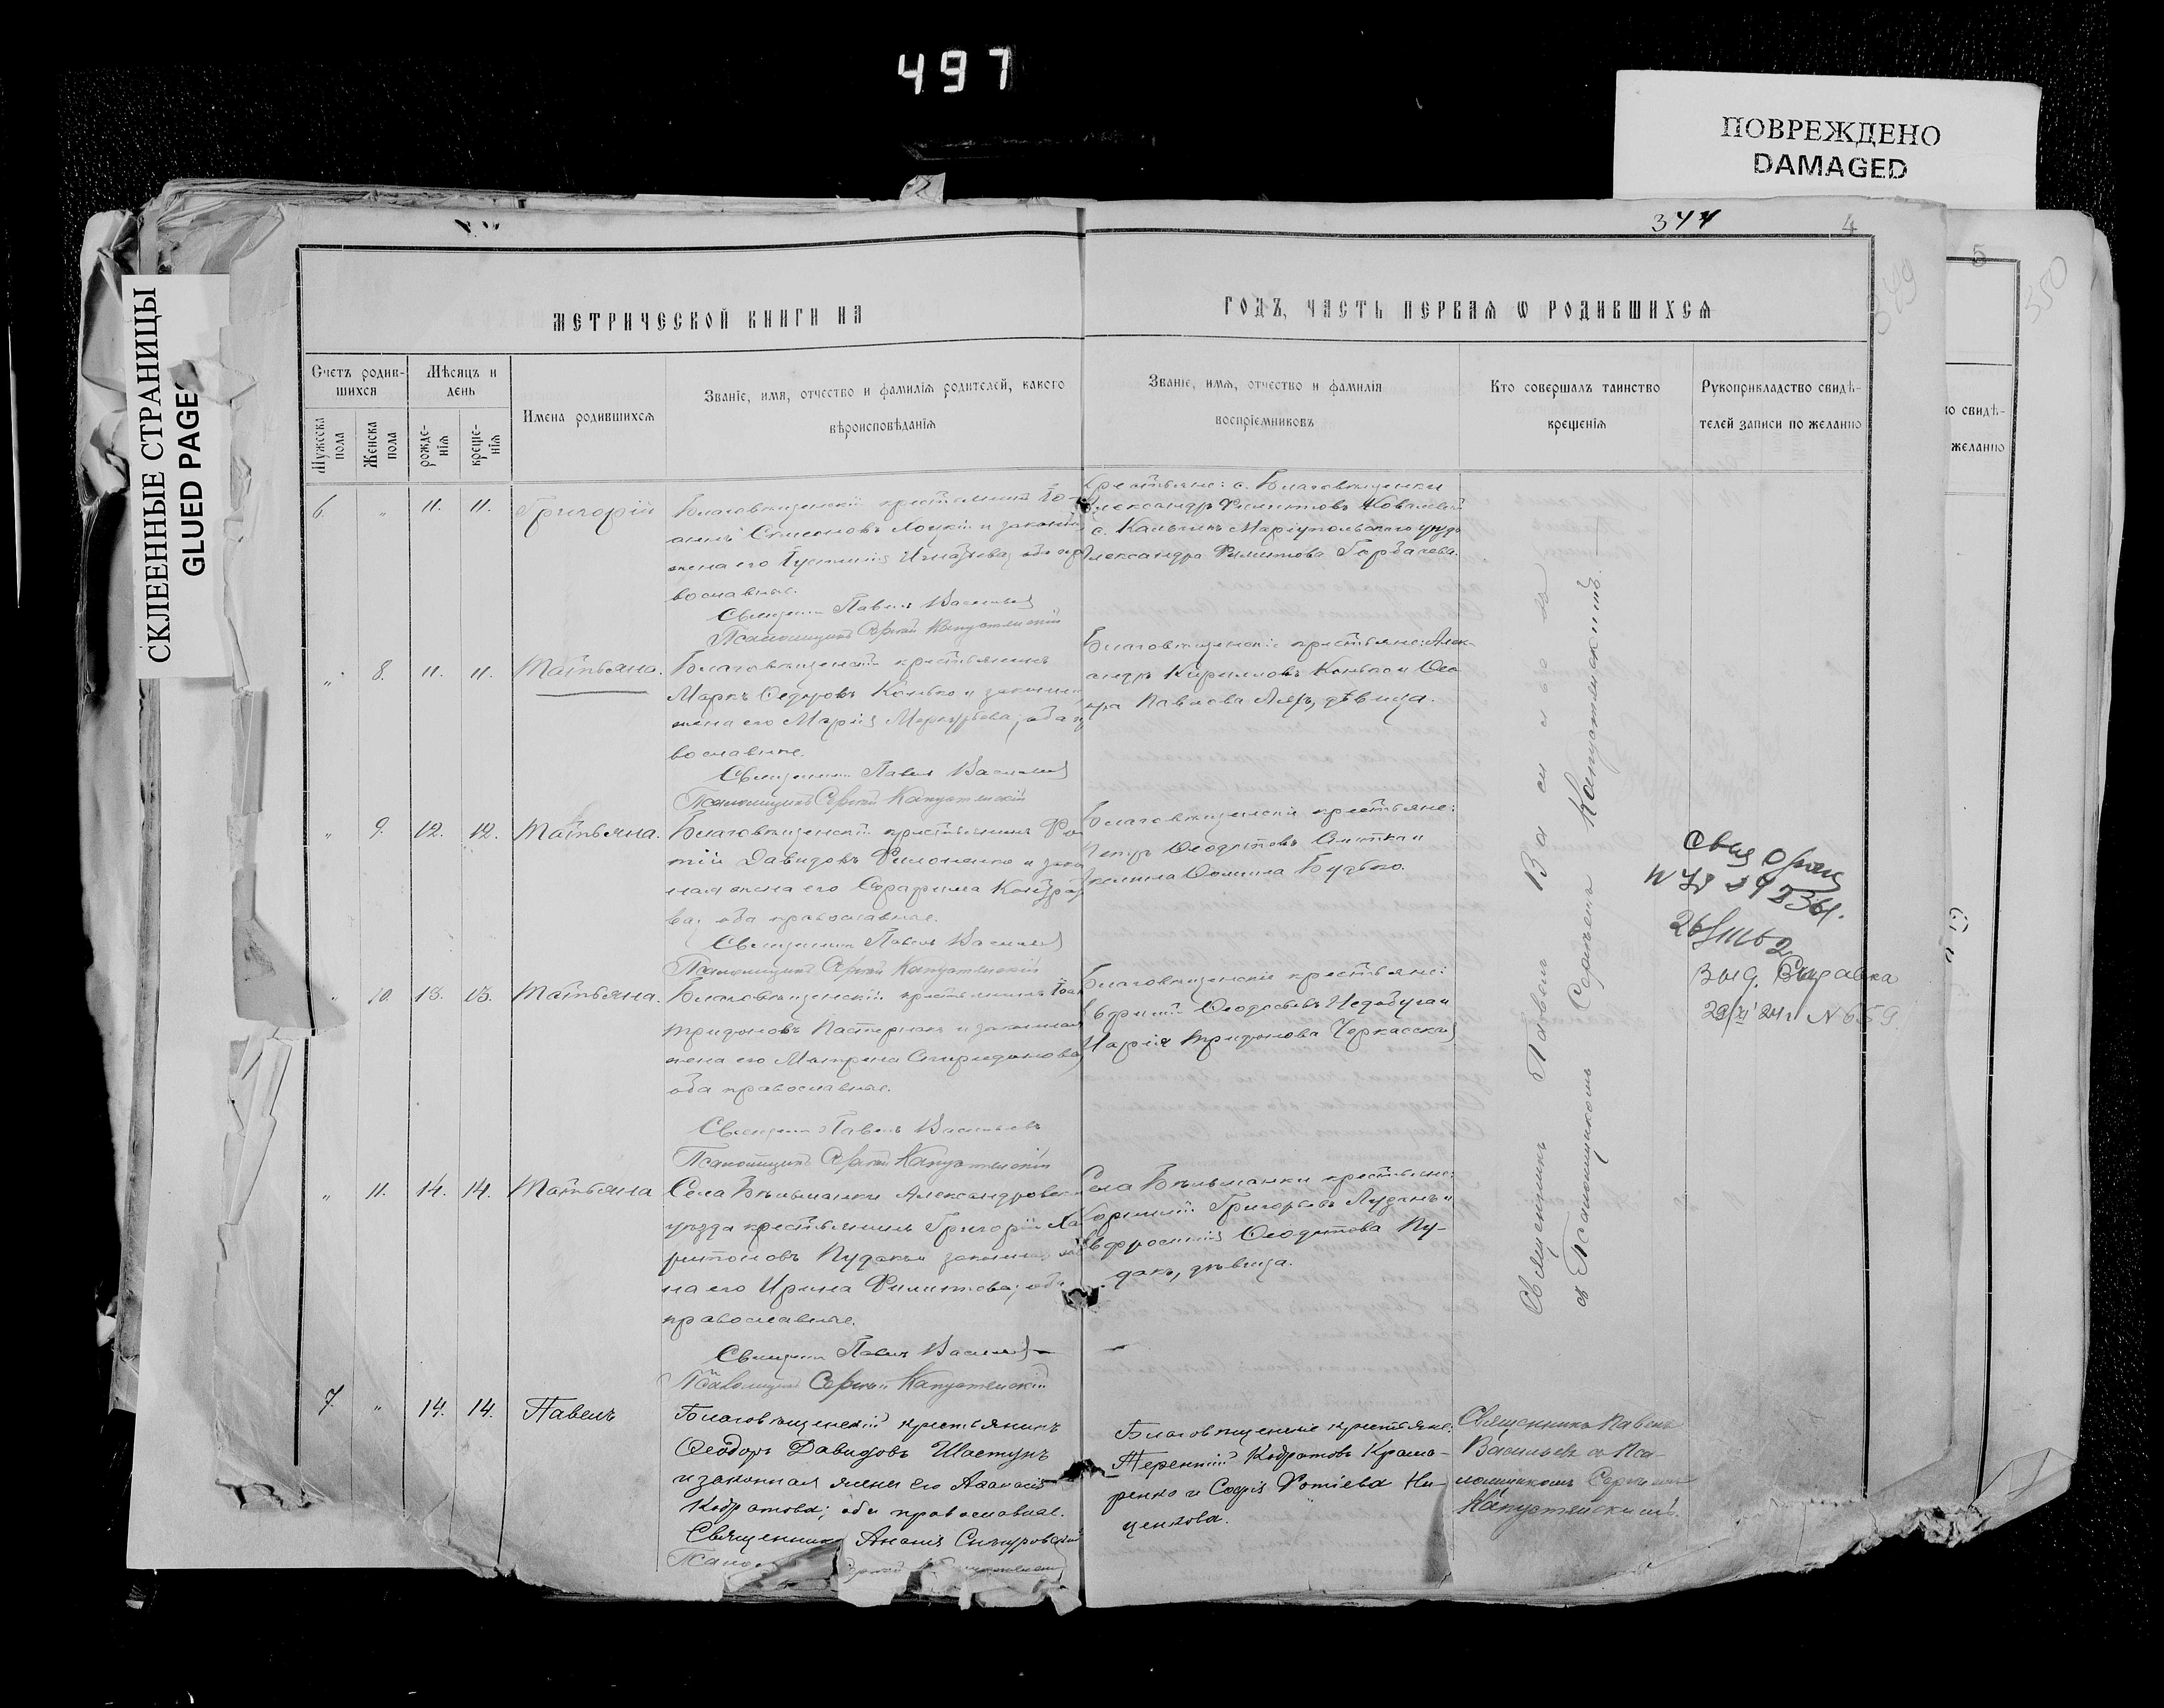 497
ПОВРЕЖДЕНО
DAMAGED
СКЛЕЕННЫЕ СТРАНИЦЫ
GLUED PAGES
344
4
349
5
350
МЕТРИЧЕСКОЙ КНИГИ НА
ГОДЪ, ЧАСТЬ ПЕРВАЯ Ѡ РОДИВШИХСЯ
Счетъ родив-
шихся
Мужеска
пола
Женска
пола
Мѣсяцъ и
день
рожде-
нія
креще-
нія
Имена родившихся
Званіе, имя, отчество и фамилія родителей, какого
вѣроисповѣданія
Званіе, имя, отчество и фамилія
воспріемниковъ
Кто совершалъ таинство
крещенія
Рукоприкладство свидѣ-
телей записи по желанію
ю свидѣ-
желанію
6. " 11. 11. Григорій
Благовѣщенскій крестьянинъ Іо-
аннъ Симеоновъ и законная
жена его Іустинія Игнатьева, оба пра
вославные.
Священникъ Павелъ Васильевъ
Псаломщикъ Сергій Капустянскій
Крестьяне: с. Благовѣщенки
Александръ Филиптовъ Коваленко
с. Маріупольскаго уѣзда
Александра Филиптова Горбачева.
" 8. 11. 11. Татьяна.
Благовѣщенскій крестьянинъ
Маркъ Федоровъ Конько и законная
жена его Марія Меркурьева, оба пра
вославные.
Священникъ Павелъ Васильевъ
Псаломщикъ Сергій Капустянскій
Благовѣщенскіе крестьяне: Алек-
сандръ Кирилловъ Конько и Ѳео
Павлова дѣвица.
" 9. 12. 12. Татьяна.
Благовѣщенскій крестьянинъ Фо
тій Давидовъ Филоненко и закон
ная жена его Серафима Кондра
ва; оба православные.
Священникъ Павелъ Васильевъ
Псаломщикъ Сергій Капустянскій
Благовѣщенскіе крестьяне:
Петръ Ѳеодотовъ и
Ѳомина Будько.
" 10. 13. 13. Татьяна.
Благовѣщенскій крестьянинъ Іоан
Трифоновъ Пастернакъ и законная
жена его Матрена Спиридонова,
оба православные.
Священникъ Павелъ Васильевъ
Псаломщикъ Сергій Капустянскій
Благовѣщенскіе крестьяне:
Ѳеодосьевъ Недобуга и
Марія Трифонова Черкасская
" 11. 14. 14. Татьяна
Села Бѣльманки Александровскаго
уѣзда крестьянинъ Григорій Ха
ритоновъ Пудакъ и законная же
на его Ирина Филиптова; оба
православные.
Священникъ Павелъ Васильевъ
Псаломщикъ Сергій Капустянскій
Села Бѣльманки крестьяне:
Корнилій Григорьевъ и
Евфросинія Ѳеодотова Пу-
дакъ, дѣвица.
Священникъ Павелъ Васильевъ
съ Псаломщикомъ Сергіемъ Капустянскимъ.
выд. Справка
29/XI 24 г N 659
7. " 14. 14. Павелъ
Благовѣщенскій крестьянинъ
Ѳеодоръ Давидовъ Шастунъ
и законная жена его Аѳанасія
Кодратова; оба православные.
Священникъ Ананія
Благовѣщенские крестьяне:
Терентій Кодратовъ Крама-
ренко и Софія Фотіева Ни-
ценкова.
Священникъ Павелъ
Васильевъ съ Пса-
ломщикомъ Сергіемъ
Капустянскимъ.